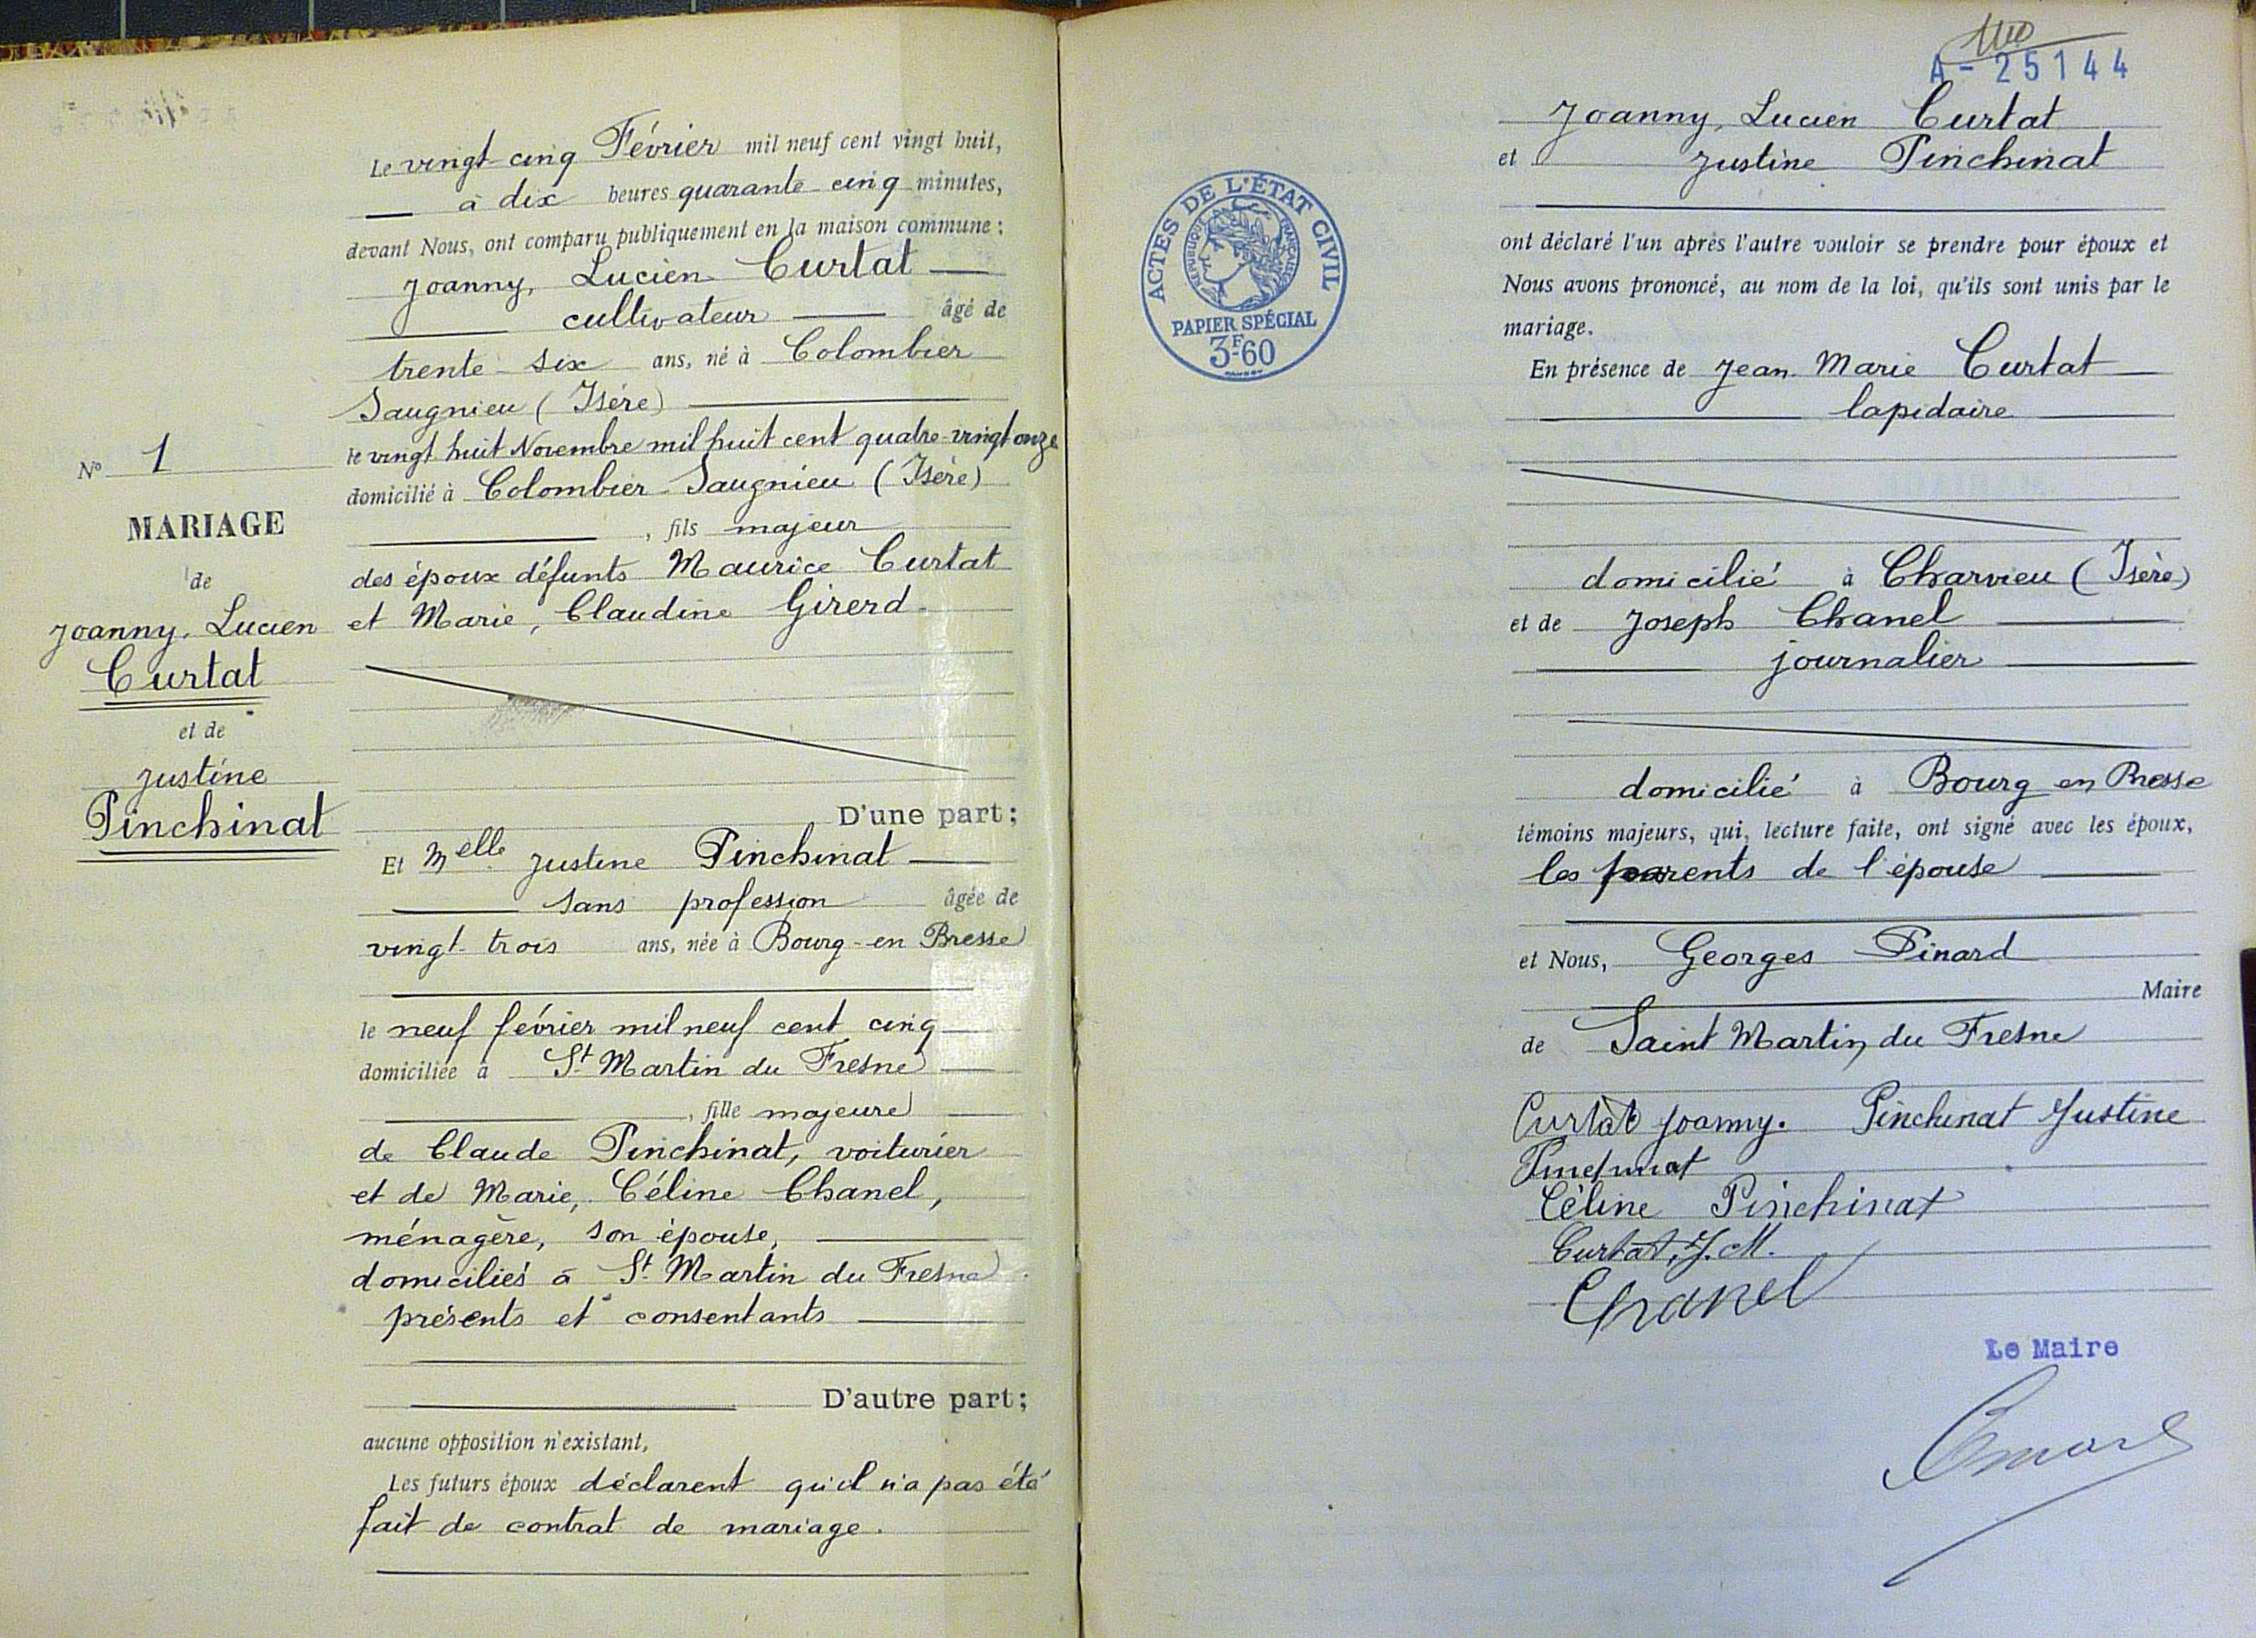 N° 1
MARIAGE
de
Joanny, Lucien
Curtat
et de
Justine
Pinchinat
Le vingt cinq Février mil neuf cent vingt huit,
à dix heures quarante cinq minutes,
devant Nous, ont comparu publiquement en la maison commune :
Joanny, Lucien Curtat
cultivateur âgé de
trente six ans, né à Colombier
Saugnieu (Isère)
le vingt huit Novembre mil huit cent quatre-vingt onze
domicilié à Colombier Saugnieu (Isère)
, fils majeur
des époux défunts Maurice Curtat
et Marie, Claudine Girerd.
D'une part ;
Et Melle Justine Pinchinat
sans profession âgée de
vingt trois ans, née à Bourg-en Bresse
le neuf février mil neuf cent cinq
domiciliée à St Martin du Fresne
, fille majeure
de Claude Pinchinat, voiturier
et de Marie, Céline Chanel,
ménagère, son épouse,
domiciliés à St Martin du Fresne
présents et consentants
D'autre part ;
aucune opposition n'existant,
Les futurs époux déclarent qu'il n'a pas été
fait de contrat de mariage.
A-25144
Joanny, Lucien Curtat
et Justine Pinchinat
ACTES DE L'ÉTAT CIVIL
RÉPUBLIQUE FRANÇAISE
PAPIER SPÉCIAL
3F60
ont déclaré l'un après l'autre vouloir se prendre pour époux et
Nous avons prononcé, au nom de la loi, qu'ils sont unis par le
mariage.
En présence de Jean Marie Curtat
lapidaire
domicilié à Charvieu (Isère)
et de Joseph Chanel
journalier
domicilié à Bourg en Bresse
témoins majeurs, qui, lecture faite, ont signé avec les époux,
les parents de l'épouse
et Nous, Georges Pinard
Maire
de Saint Martin du Fresne
Curtat Joanny. Pinchinat Justine
Pinchinat
Céline Pinchinat
Curtat, J. M.
Chanel
Le Maire